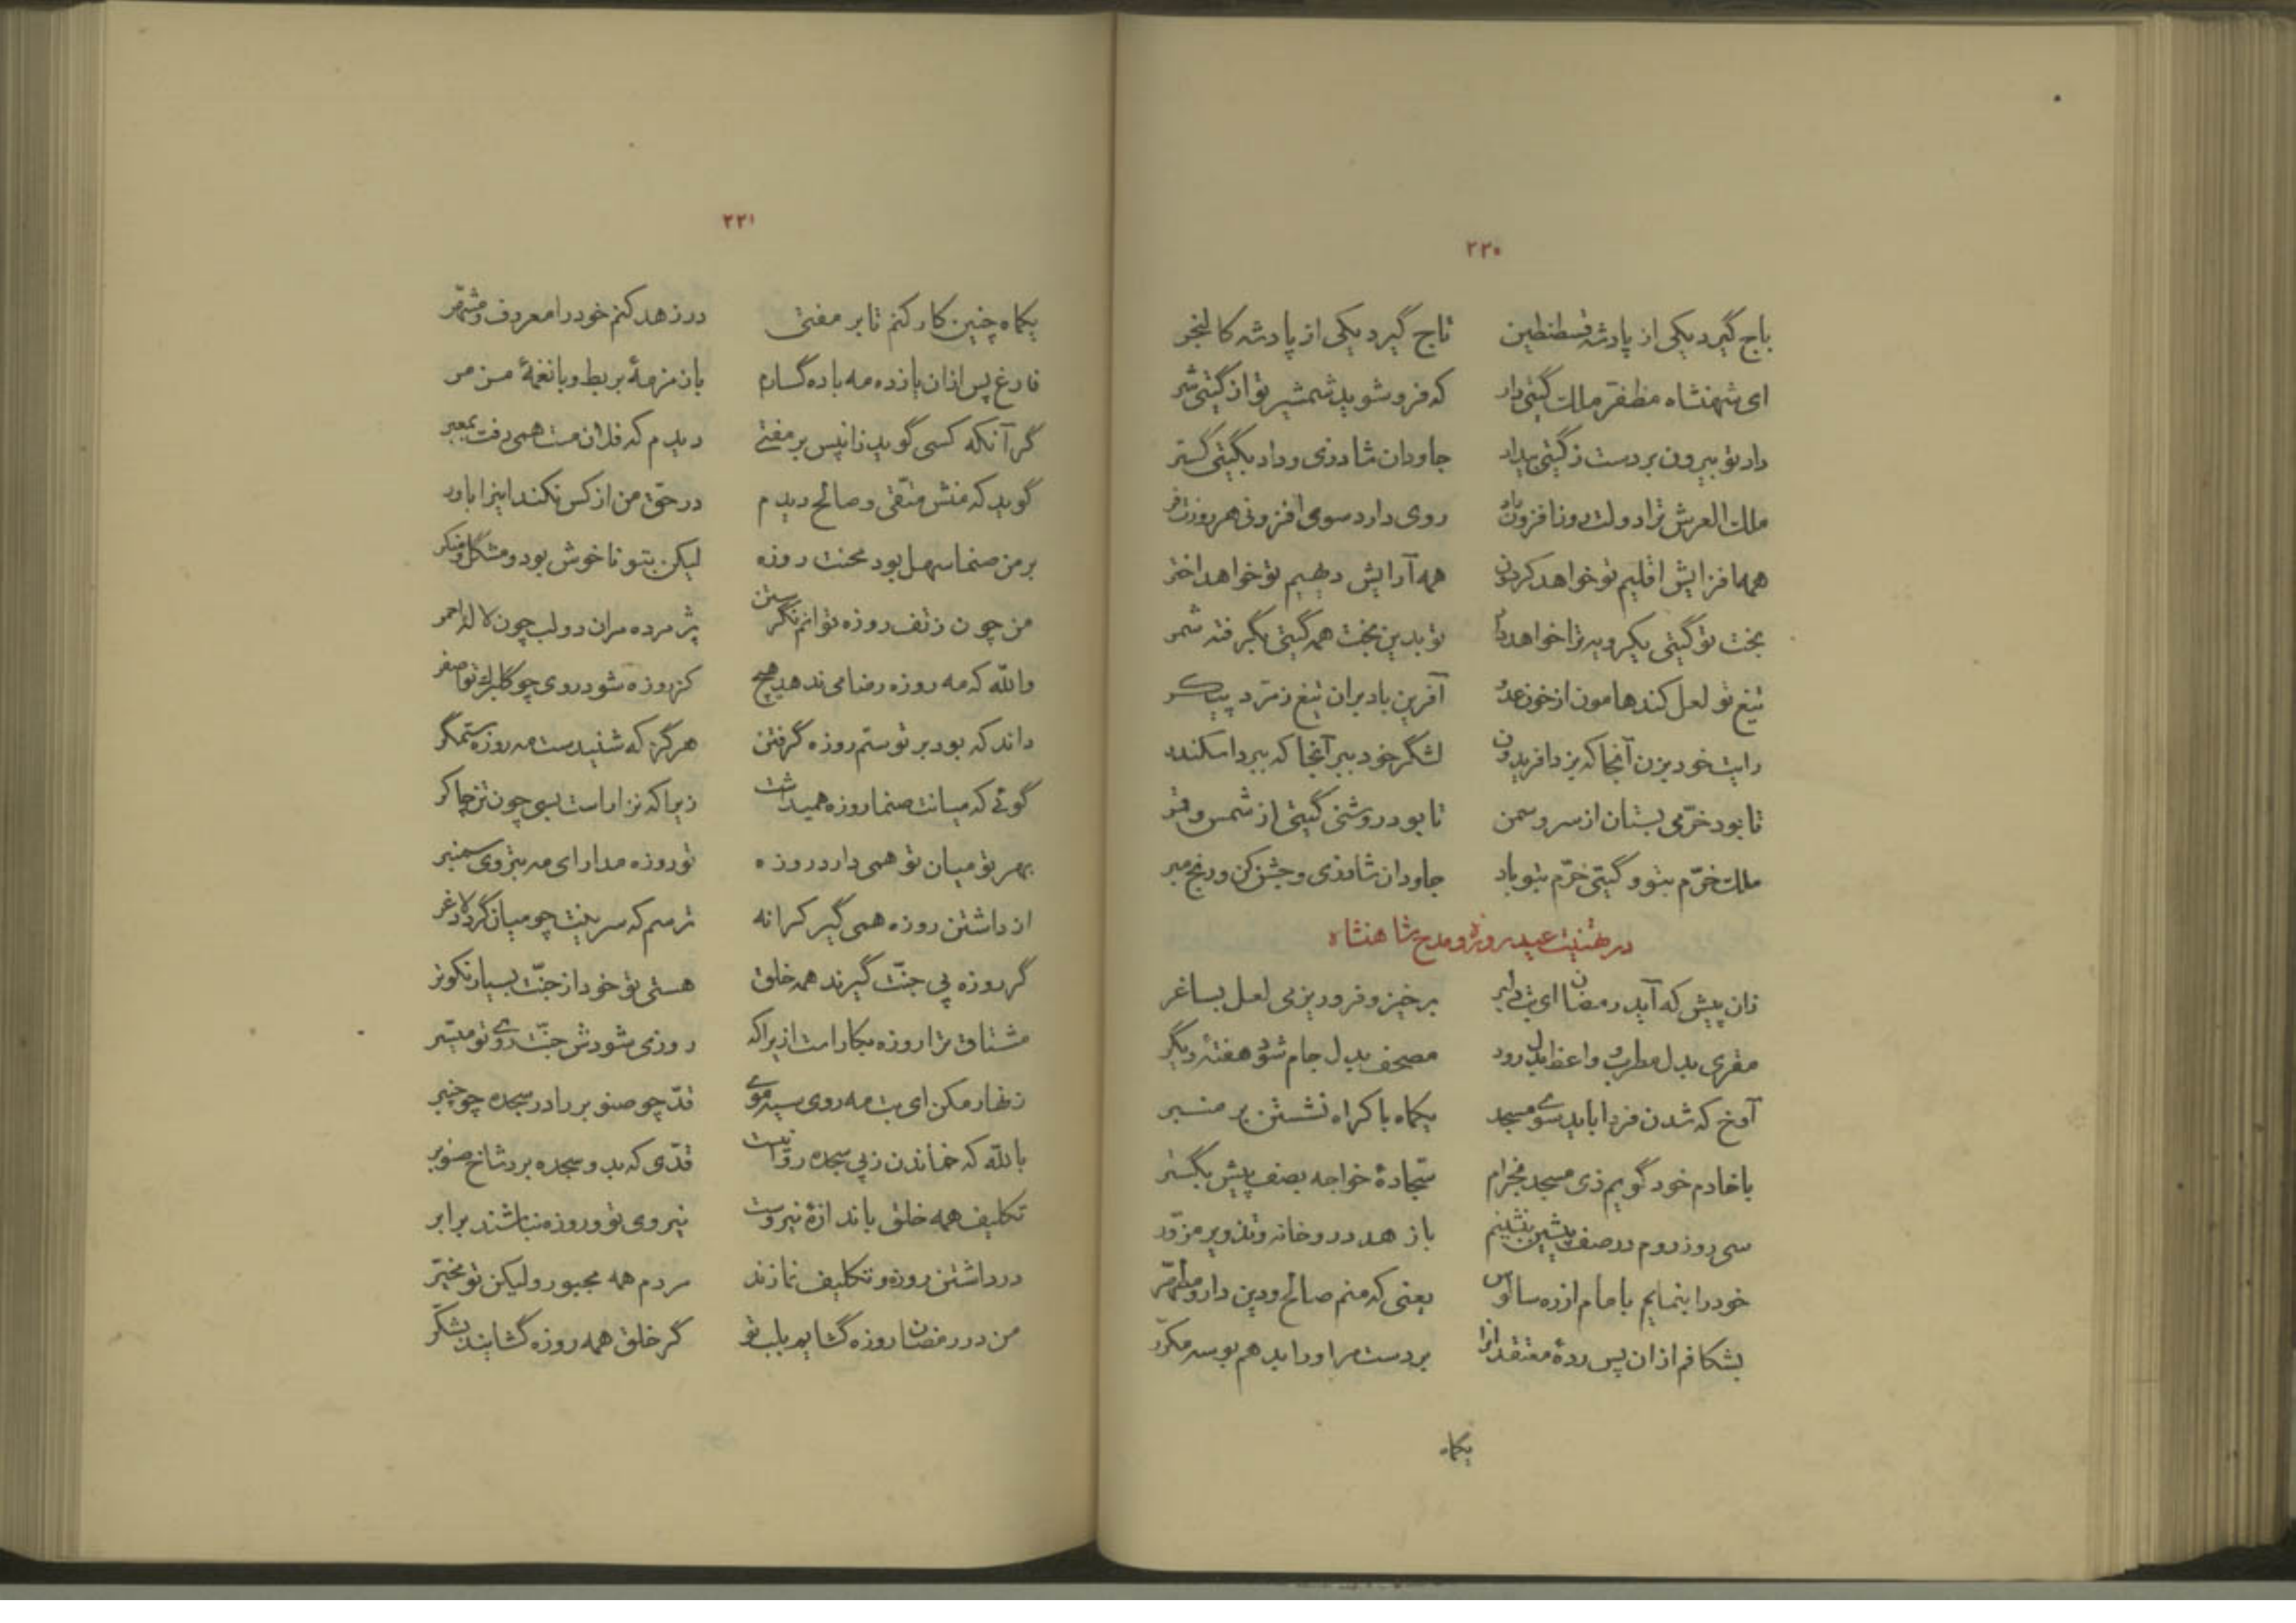 ۲۲۰
باج گیرد یکی از پادشه قسطنطین تاج گیرد یکی از پادشه کالنجر
ای شهنشاه مظفر ملک گیتی دار که فرو شوید شمشیر تو از گیتی شر
داد تو بیرون بردست ز گیتی بیداد جاودان شاد زی و داد بگیتی گستر
ملک العرش ترا دولت روز افزون داد روی دارد سوی افزونی هر روزت فر
همه افزایش اقلیم تو خواهد گردون همه آرایش دیهیم تو خواهد اختر
بخت تو گیتی یکرویه ترا خواهد داد تو بدین بخت همه گیتی بگرفته شمر
تیغ تو لعل کند هامون از خون عدو آفرین باد بران تیغ زمرد پیکر
رایت خود بزن آنجا که بزد افریدون لشگر خود ببر آنجا که ببرد اسکندر
تا بود خرّمی بستان از سرو سمن تا بود روشنی گیتی از شمس و قمر
ملک خرّم بتو و گیتی خرّم بتو باد جاودان شاد زی و جشن کن و رنج مبر
در تهنیت عید روزه و مدح شاهنشاه
زان پیش که آید رمضان ای بت دلبر برخیز و فرو ریز می لعل بساغر
مقری بدل مطرب و واعظ بدل رود مصحف بدل جام شود هفتهٔ دیگر
آوخ که شدن فردا باید سوی مسجد یکماه باکراه نشستن بر منبر
با خادم خود گویم زی مسجد بخرام سجّادهٔ خواجه بصف پیش بگستر
سی روز روم در صف پیشین بنشینم با زهد دروغانه و تذویر مزوّر
خود را بنمایم بامام از ره سالوس یعنی که منم صالح و دین دار و مطهّر
بشکافم ازان پس ردهٔ معتقدان را بر دست مر او را بدهم بوسه مکرّر
یکماه
۲۲۱
یکماه چنین کار کنم تا بر مفتی در زهد کنم خود را معروف و مشمّر
فارغ پس ازان یازده مه باده گسارم با زمزمهٔ بربط و با نغمهٔ مزمر
گر آنکه کسی گوید زانپس بر مفتی دیدم که فلان مست همی رفت بمعبر
گوید که منش متّقی و صالح دیدم در حقّ من از کس نکند اینرا باور
بر من صنما سهل بود محنت روزه لیکن بتو ناخوش بود و مشکل و منکر
من چون ز تف روزه توانم نگرستن پژمرده مران دو لب چون لالهٔ احمر
والله که مه روزه رضا می ندهد هیچ کز روزه شود روی چو گلبرگ تو اصفر
داند که بود بر تو ستم روزه گرفتن هرگز که شنیدست مه روزه ستمگر
گوئی که میانت صنما روزه همیداشت زیرا که نزار است بسی چون تن چاکر
بهر تو میان تو همی دارد روزه تو روزه مدار ای مه بتروی سمنبر
از داشتن روزه همی گیر کرانه ترسم که سرینت چو میان گردد لاغر
گر روزه پی جنّت گیرند همه خلق هستی تو خود از جنّت بسیار نکوتر
مشتاق ترا روزه بکار است ازیراکه روزی شودش جنّت روی تو میسّر
زنهار مکن ای بت مه روی سیه موی قدّ چو صنوبر را در سجده چو چنبر
بالله که خماندن ز پی سجده روا نیست قدّی که بدو سجده برد شاخ صنوبر
تکلیف همه خلق باندازهٔ نیروست نیروی تو و روزه نباشند برابر
در داشتن روزه و تکلیف نمازند مردم همه مجبور و لیکن تو مخیّر
من در رمضان روزه گشایم بلب تو گر خلق همه روزه گشایند بشکّر